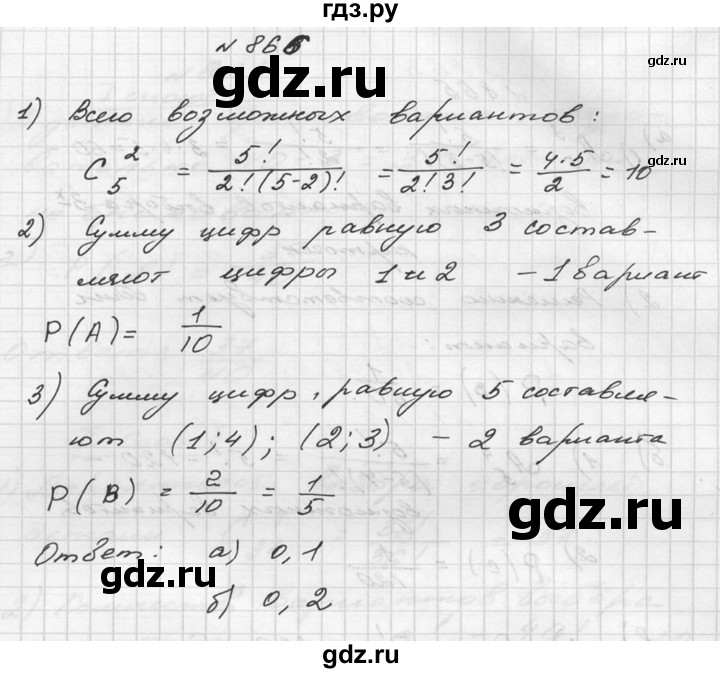 гдз.ру
№ 866
1) Всего возможных вариантов:
C₅² = 5!/2!(5-2)! = 5!/2!3! = 4·5/2 = 10
2) Сумму цифр равную 3 состав-
ляют цифры 1 и 2 - 1 вариант
P(A) = 1/10
3) Сумму цифр, равную 5 составля-
ют (1;4); (2;3) - 2 варианта
P(B) = 2/10 = 1/5
Ответ: а) 0,1
б) 0,2
gdz.ru
gdz.ru
gdz.ru
gdz.ru